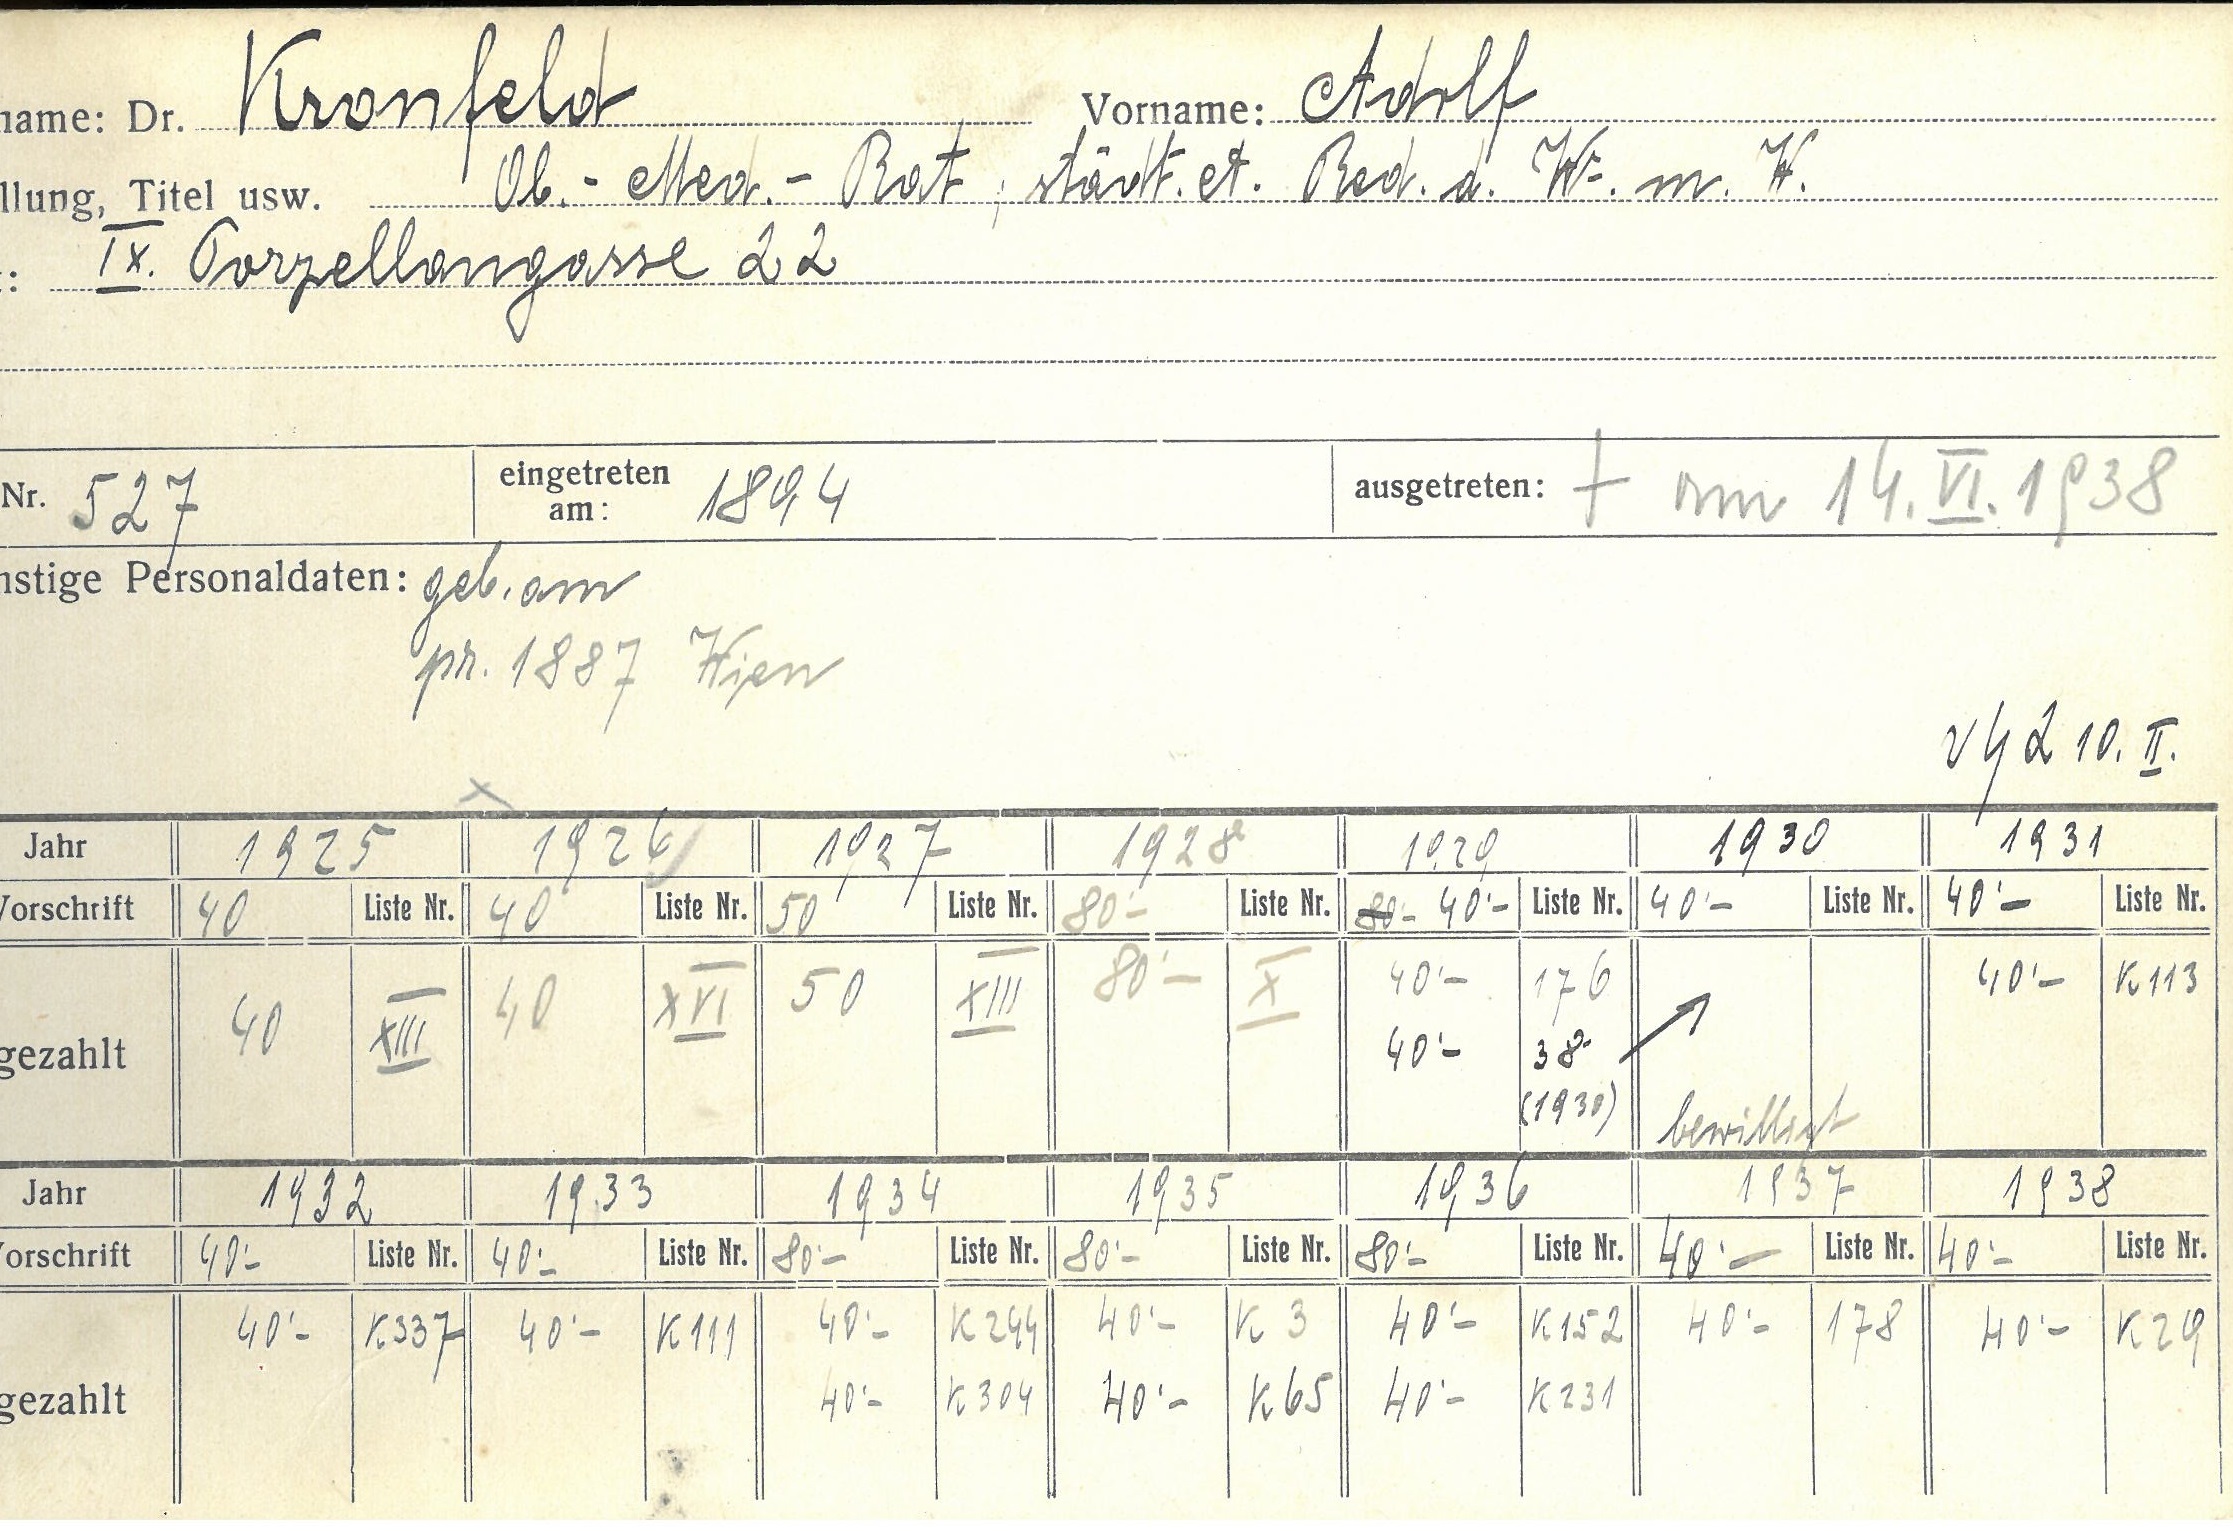 name: Dr. Kronfeld Vorname: Adolf
llung, Titel usw. Ob.-Med.-Rat, städt. A. Red. d. W. m. W.
: IX. Porzellangasse 22
Nr. 527 eingetreten am: 1894 ausgetreten: † am 14. VI. 1938
nstige Personaldaten: geb. am
pr. 1887 Wien
10. II.
x
Jahr 1925 1926 1927 1928 1929 1930 1931
Vorschrift 40 Liste Nr. 40 Liste Nr. 50 Liste Nr. 80·- Liste Nr. 80·- 40·- Liste Nr. 40·- Liste Nr. 40·- Liste Nr.
gezahlt 40 XIII 40 XVI 50 XIII 80·- X 40·- 176 40·- K 113
40·- 38
(1930)
bewilligt
Jahr 1932 1933 1934 1935 1936 1937 1938
Vorschrift 40·- Liste Nr. 40·- Liste Nr. 80·- Liste Nr. 80·- Liste Nr. 80·- Liste Nr. 40·- Liste Nr. 40·- Liste Nr.
gezahlt 40·- K337 40·- K111 40·- K244 40·- K 3 40·- K152 40·- 178 40·- K29
40·- K304 40·- K65 40·- K231